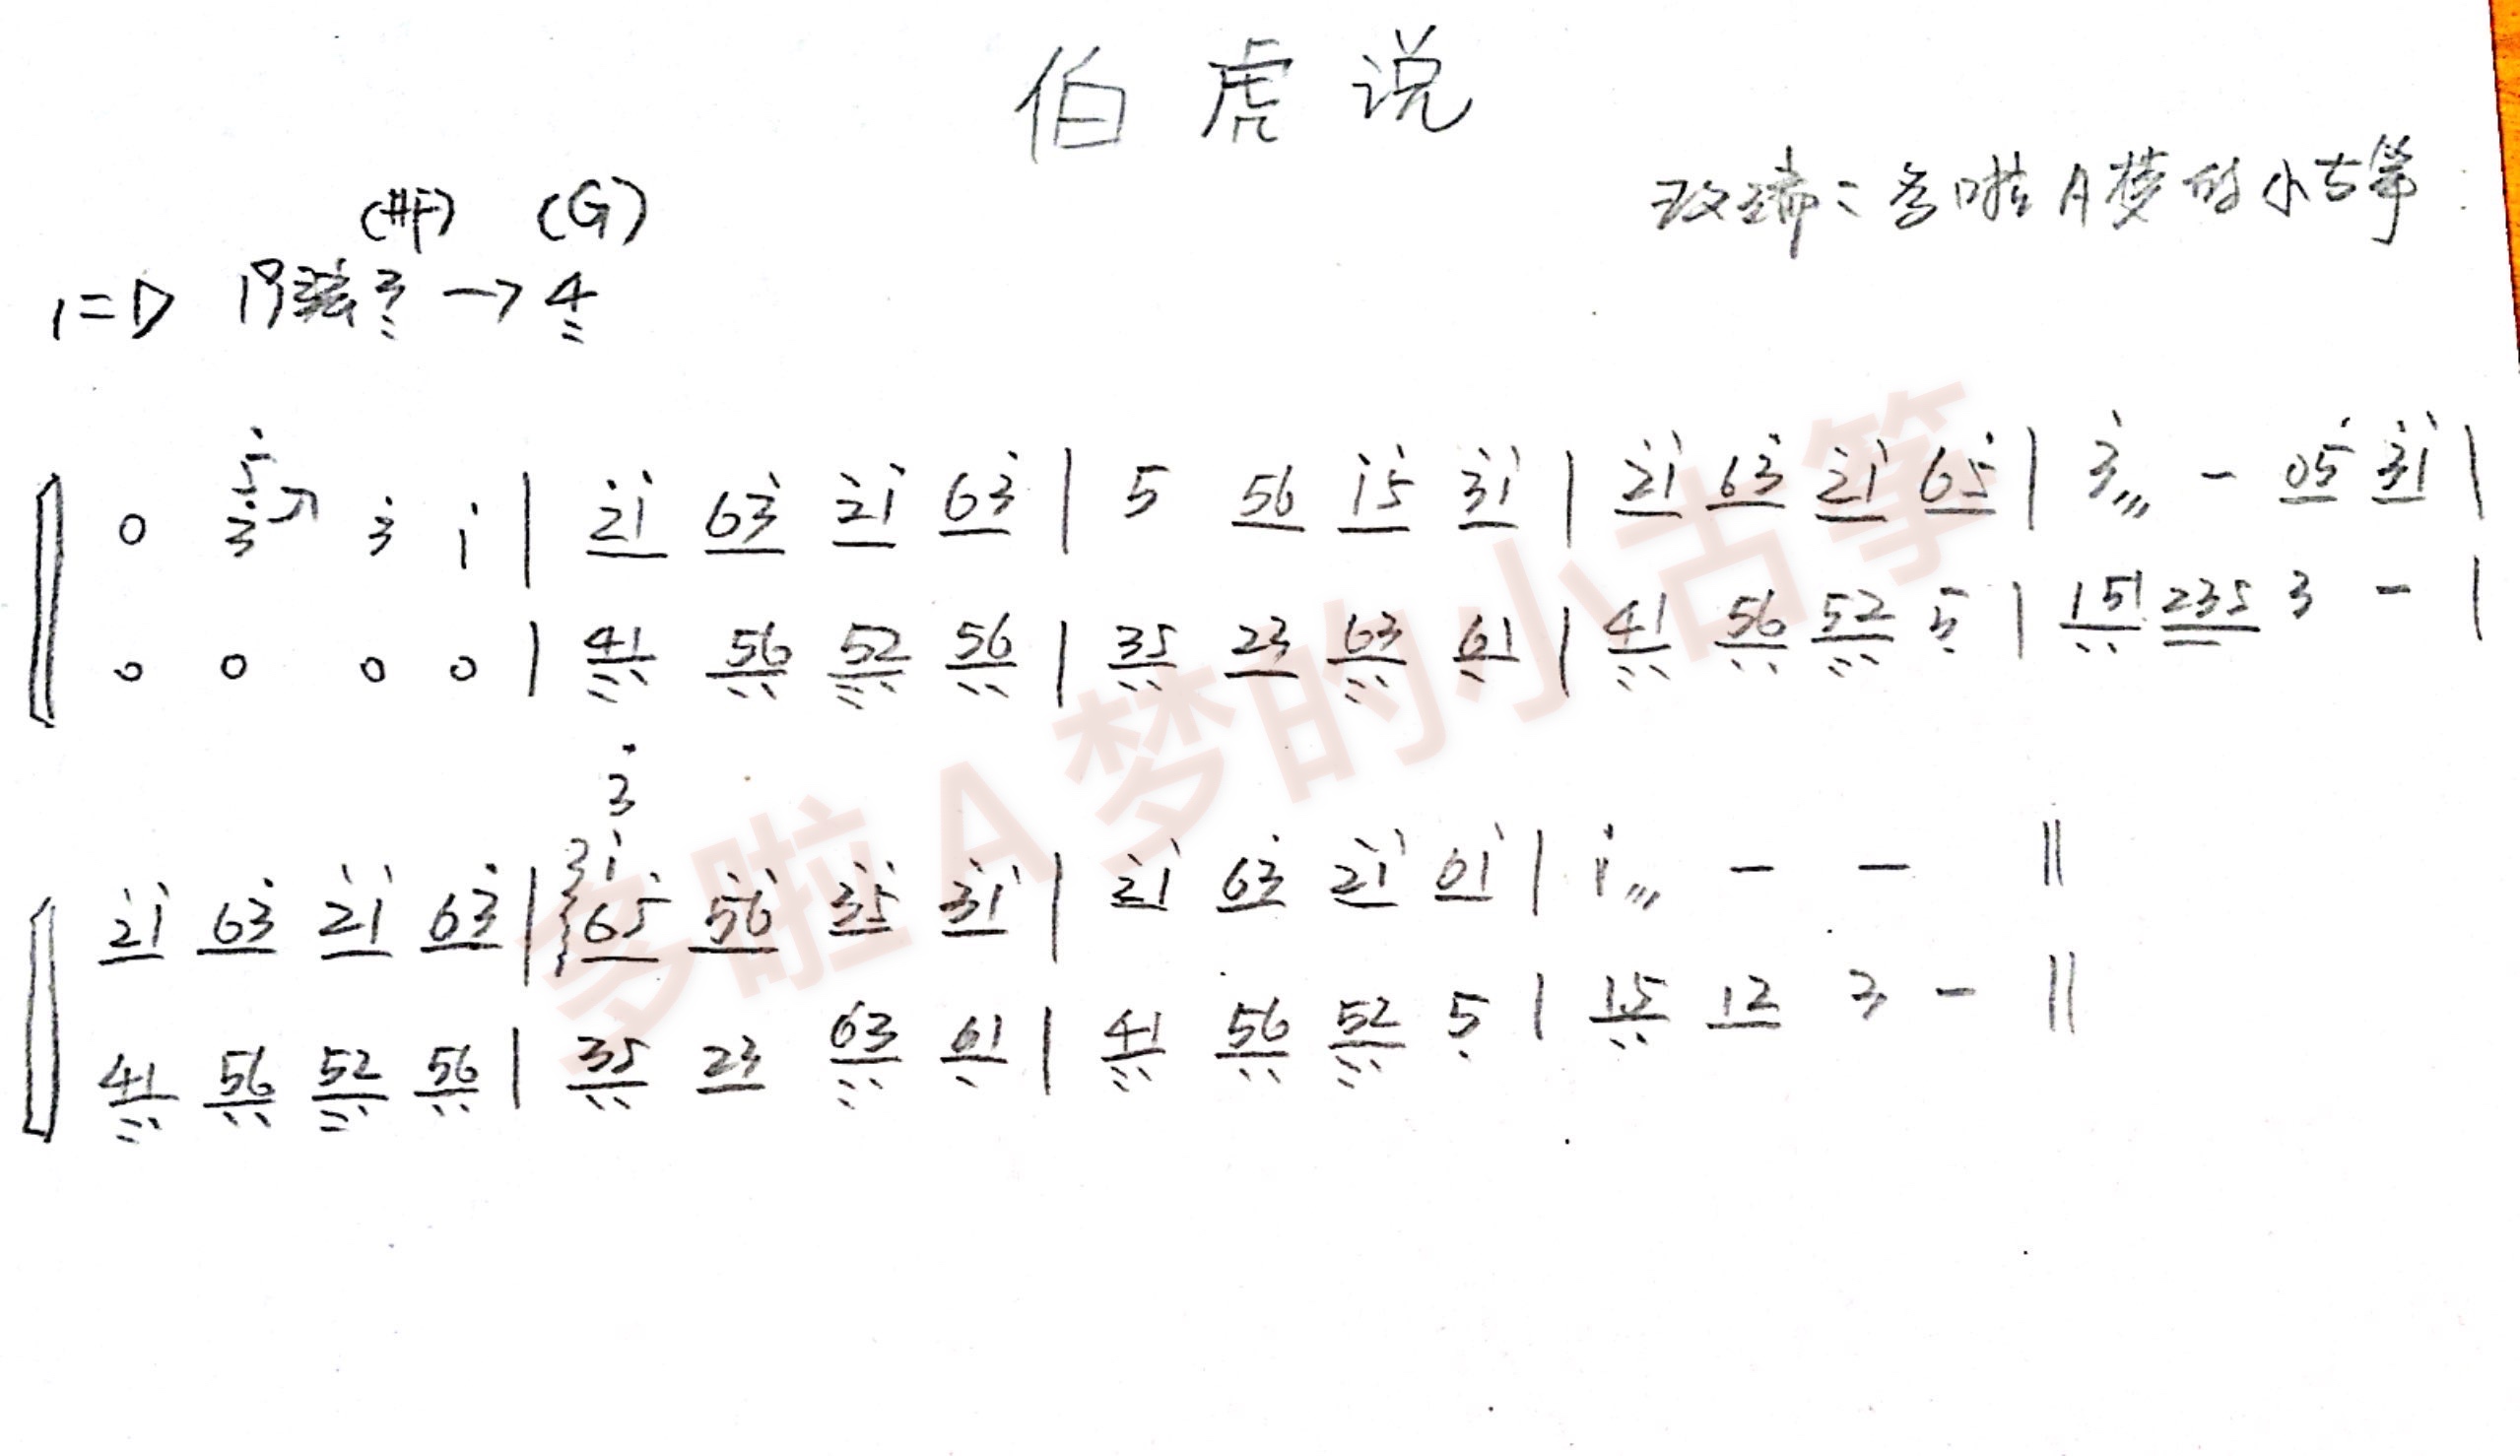 伯虎说
改编：多啦A梦的小古筝
(#F) (G)
1=D 19弦3 → 4
0 5 3 3 1 | 21 63 21 63 | 5 56 15 31 | 21 63 21 65 | 3 - 05 31 |
0 0 0 0 | 41 56 52 56 | 35 23 63 61 | 41 56 52 5 | 151 235 3 - |
3
1
21 63 21 63 | 65 56 35 31 | 21 63 21 61 | 1 - - ||
41 56 52 56 | 35 23 63 61 | 41 56 52 5 | 15 12 3 - ||
多啦A梦的小古筝